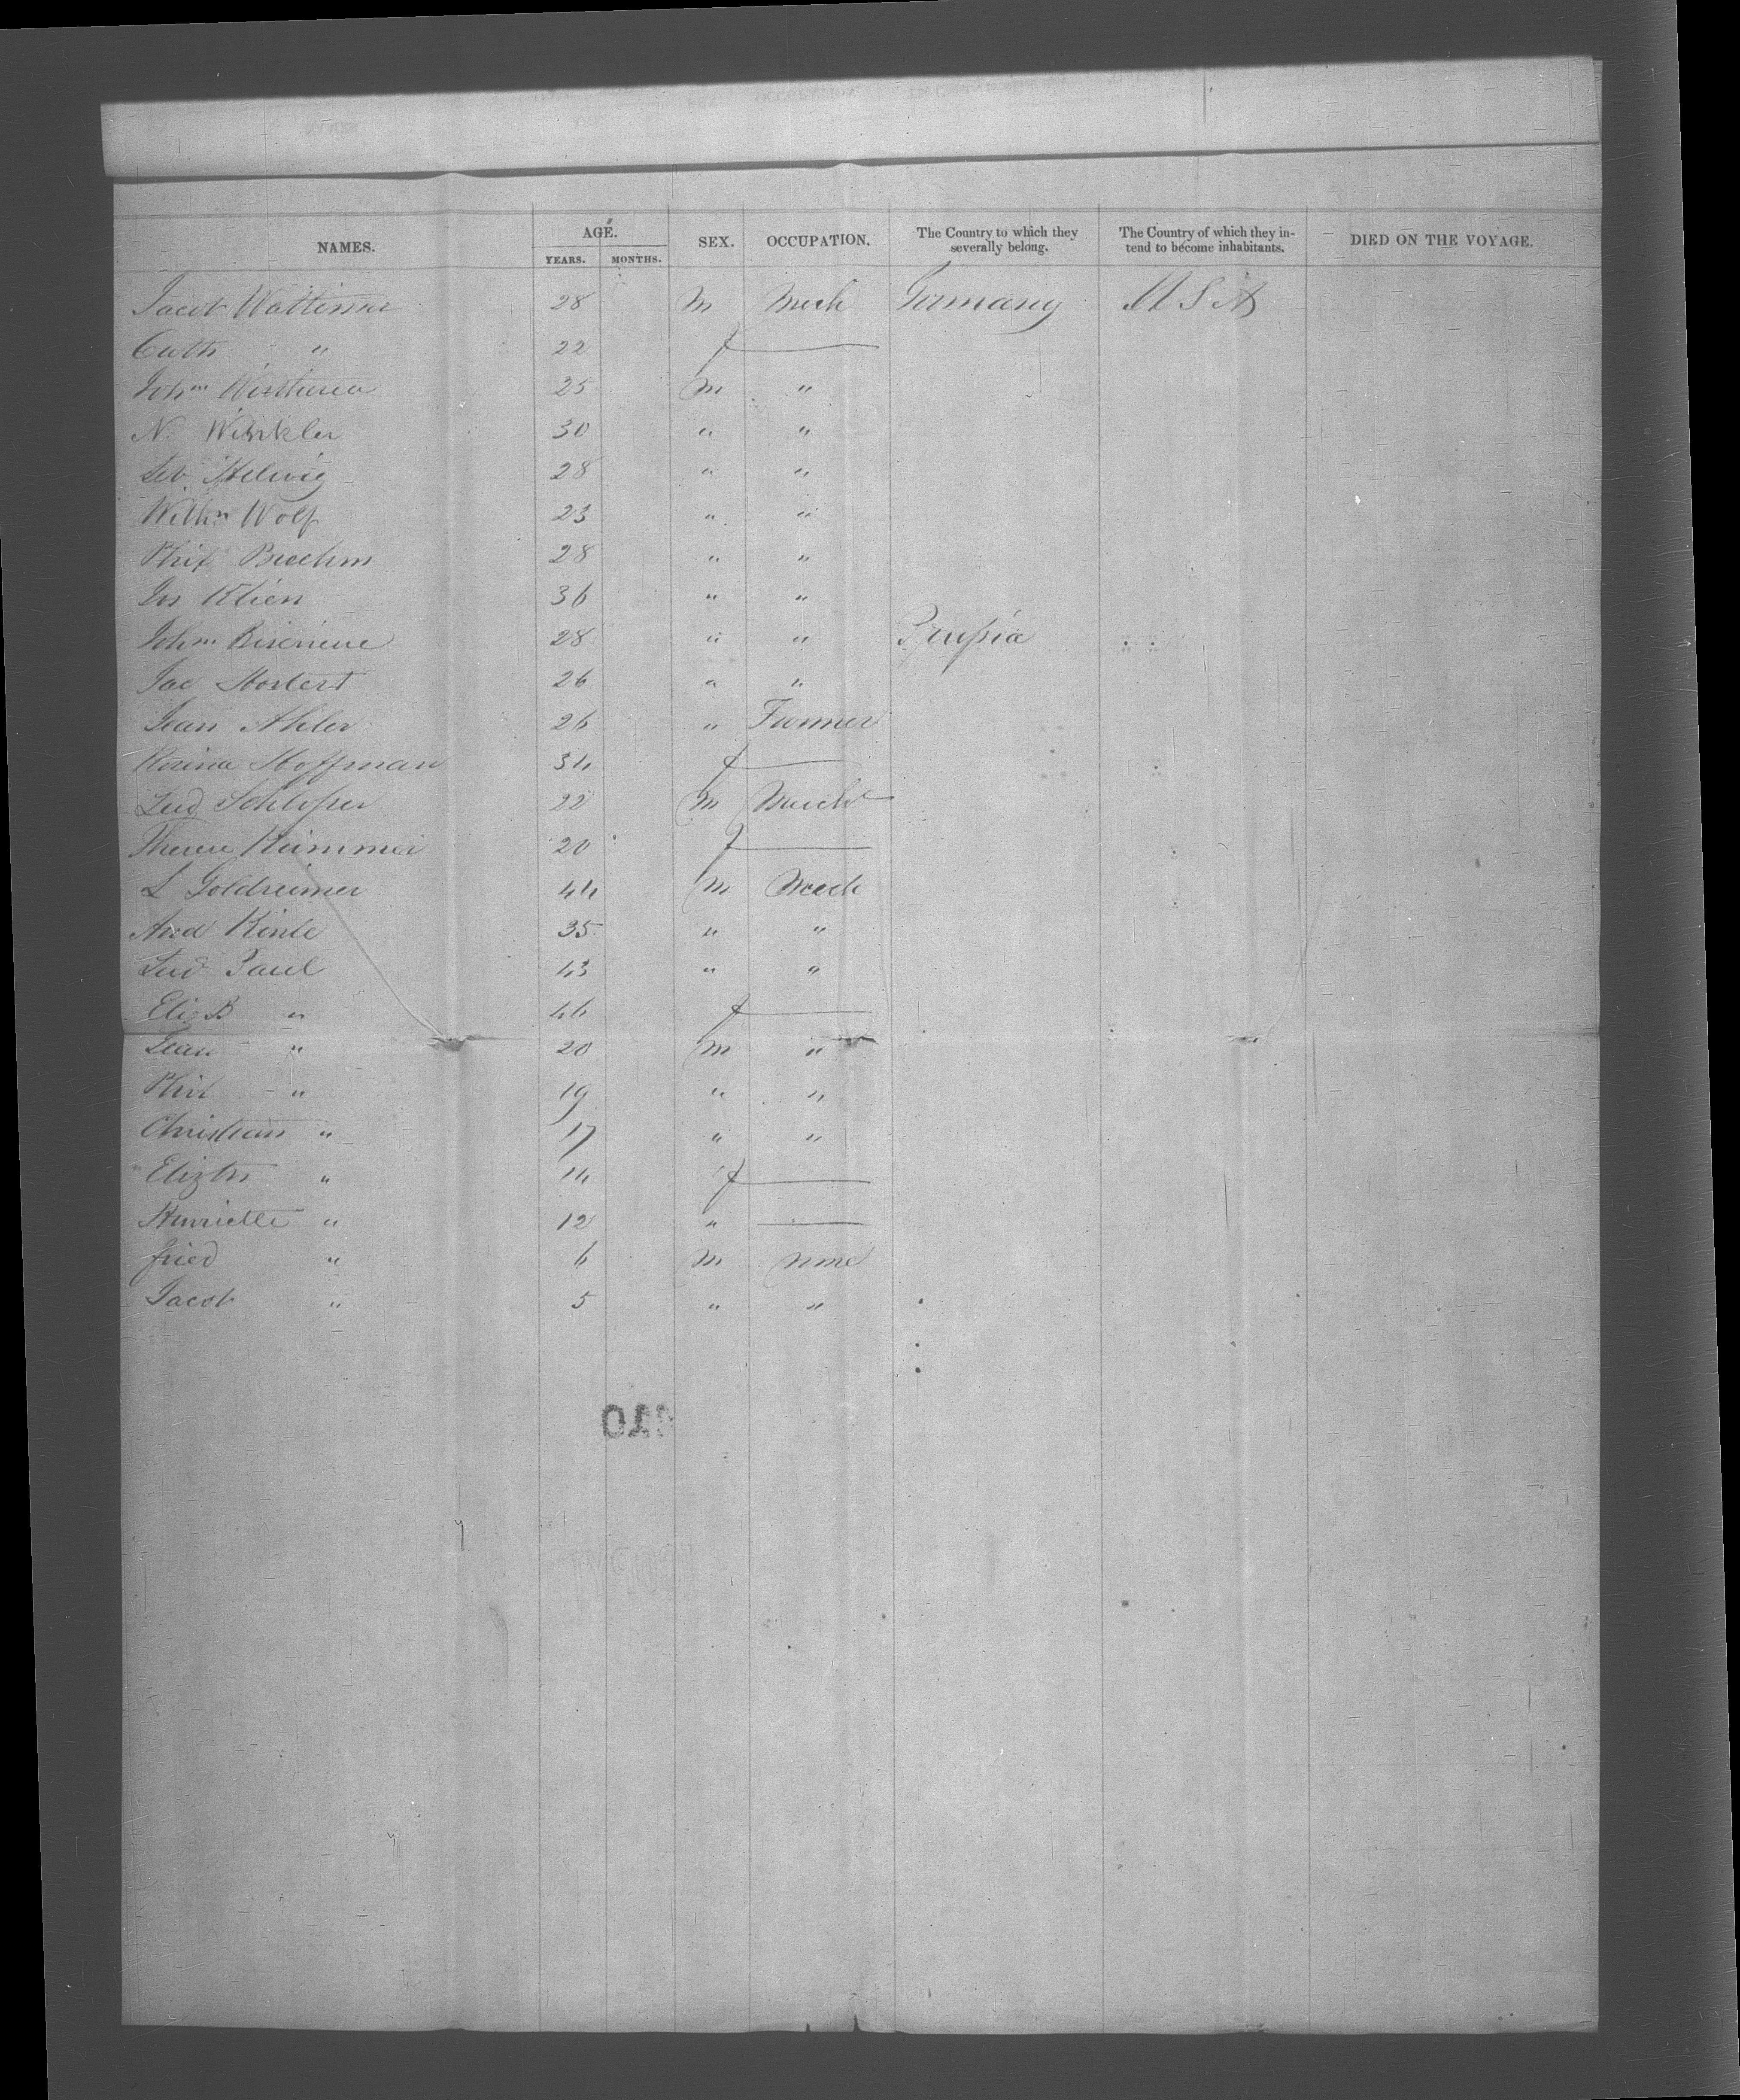 NAMES. AGE. SEX. OCCUPATION. The Country to which they severally belong. The Country of which they intend to become inhabitants. DIED ON THE VOYAGE.
YEARS. MONTHS.
Jacob 28 m Mech Germany U S A
Cath " 22 f
Johm 25 m "
N. Winkler 30 " "
Seb. Helwig 28 " "
Wilhm Wolf 23 " "
Phil 28 " "
Jos Klien 36 " "
Johm 28 " " Prussia
Jac 26 " "
Jean Ahler 26 " Farmer
Rosina Hoffman 34 f
Lud Schlosser 22 m Mech
Therese Kummer 20 f
L Goldreimer 44 m Mech
And Kinle 35 " "
Lud Paul 43 " "
Eliz B " 46 f
Jean " 20 m "
Phil " 19 " "
Christian " 17 " "
Elizth " 14 f
Henriette " 12 "
fried " 6 m none
Jacob " 5 " "